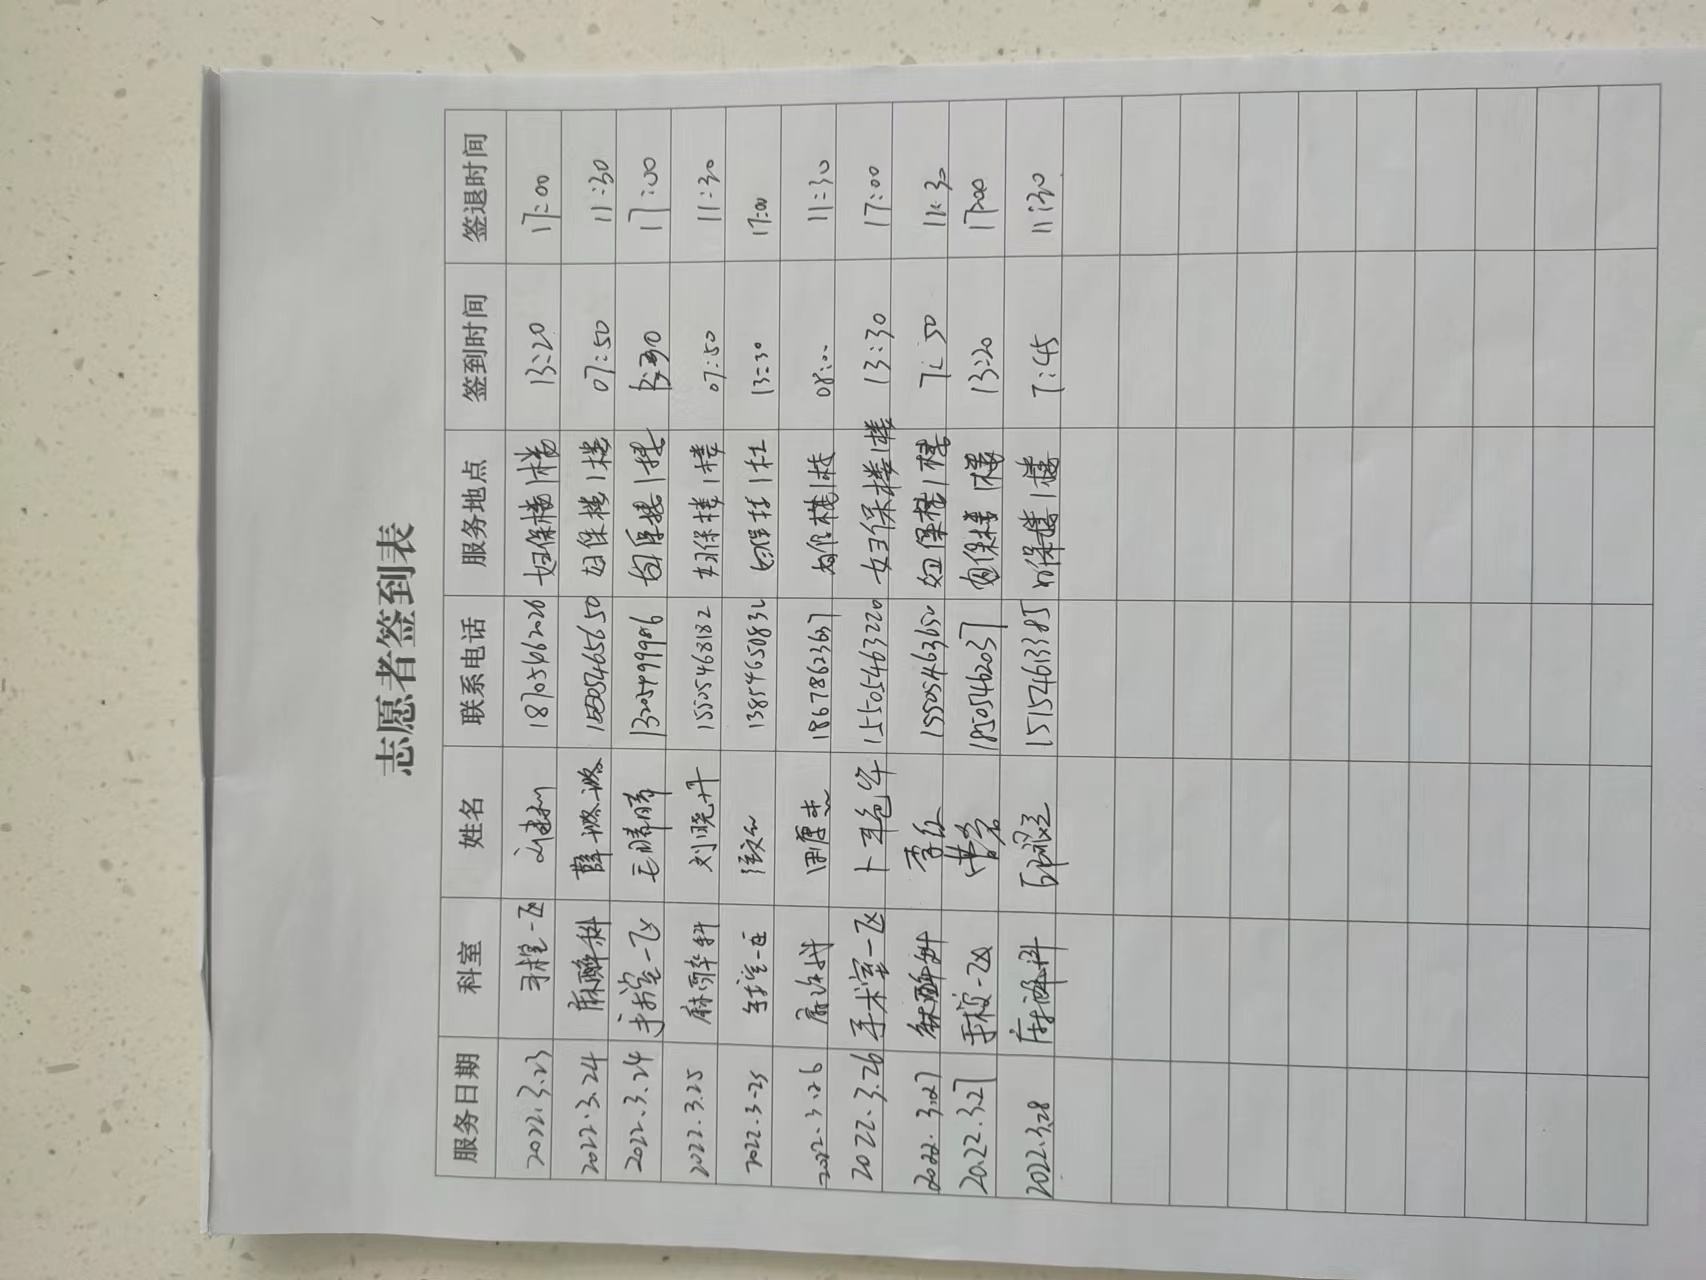 志愿者签到表
服务日期 科室 姓名 联系电话 服务地点 签到时间 签退时间
2022.3.23 手术室一区 18705462026 妇保楼1楼 13:20 17:00
2022.3.24 麻醉科 薛波波 妇保楼1楼 07:50 11:30
2022.3.24 手术室一区 毛腾腾 妇保楼1楼 17:00
2022.3.25 麻醉科 刘晓丹 15505468182 妇保楼1楼 07:50 11:30
2022.3.25 手术室一区 13854650832 妇保楼1楼 13:30 17:00
2022.3.26 麻醉科 18678623671 妇保楼1楼 08:00 11:30
2022.3.26 手术室一区 卜艳华 15505463220 妇保楼1楼 13:30 17:00
2022.3.27 麻醉科 李红 妇保楼1楼 7:50 11:30
2022.3.27 手术室一区 18505462037 妇保楼1楼 13:20 17:00
2022.3.28 麻醉科 15154613385 妇保楼1楼 7:45 11:30